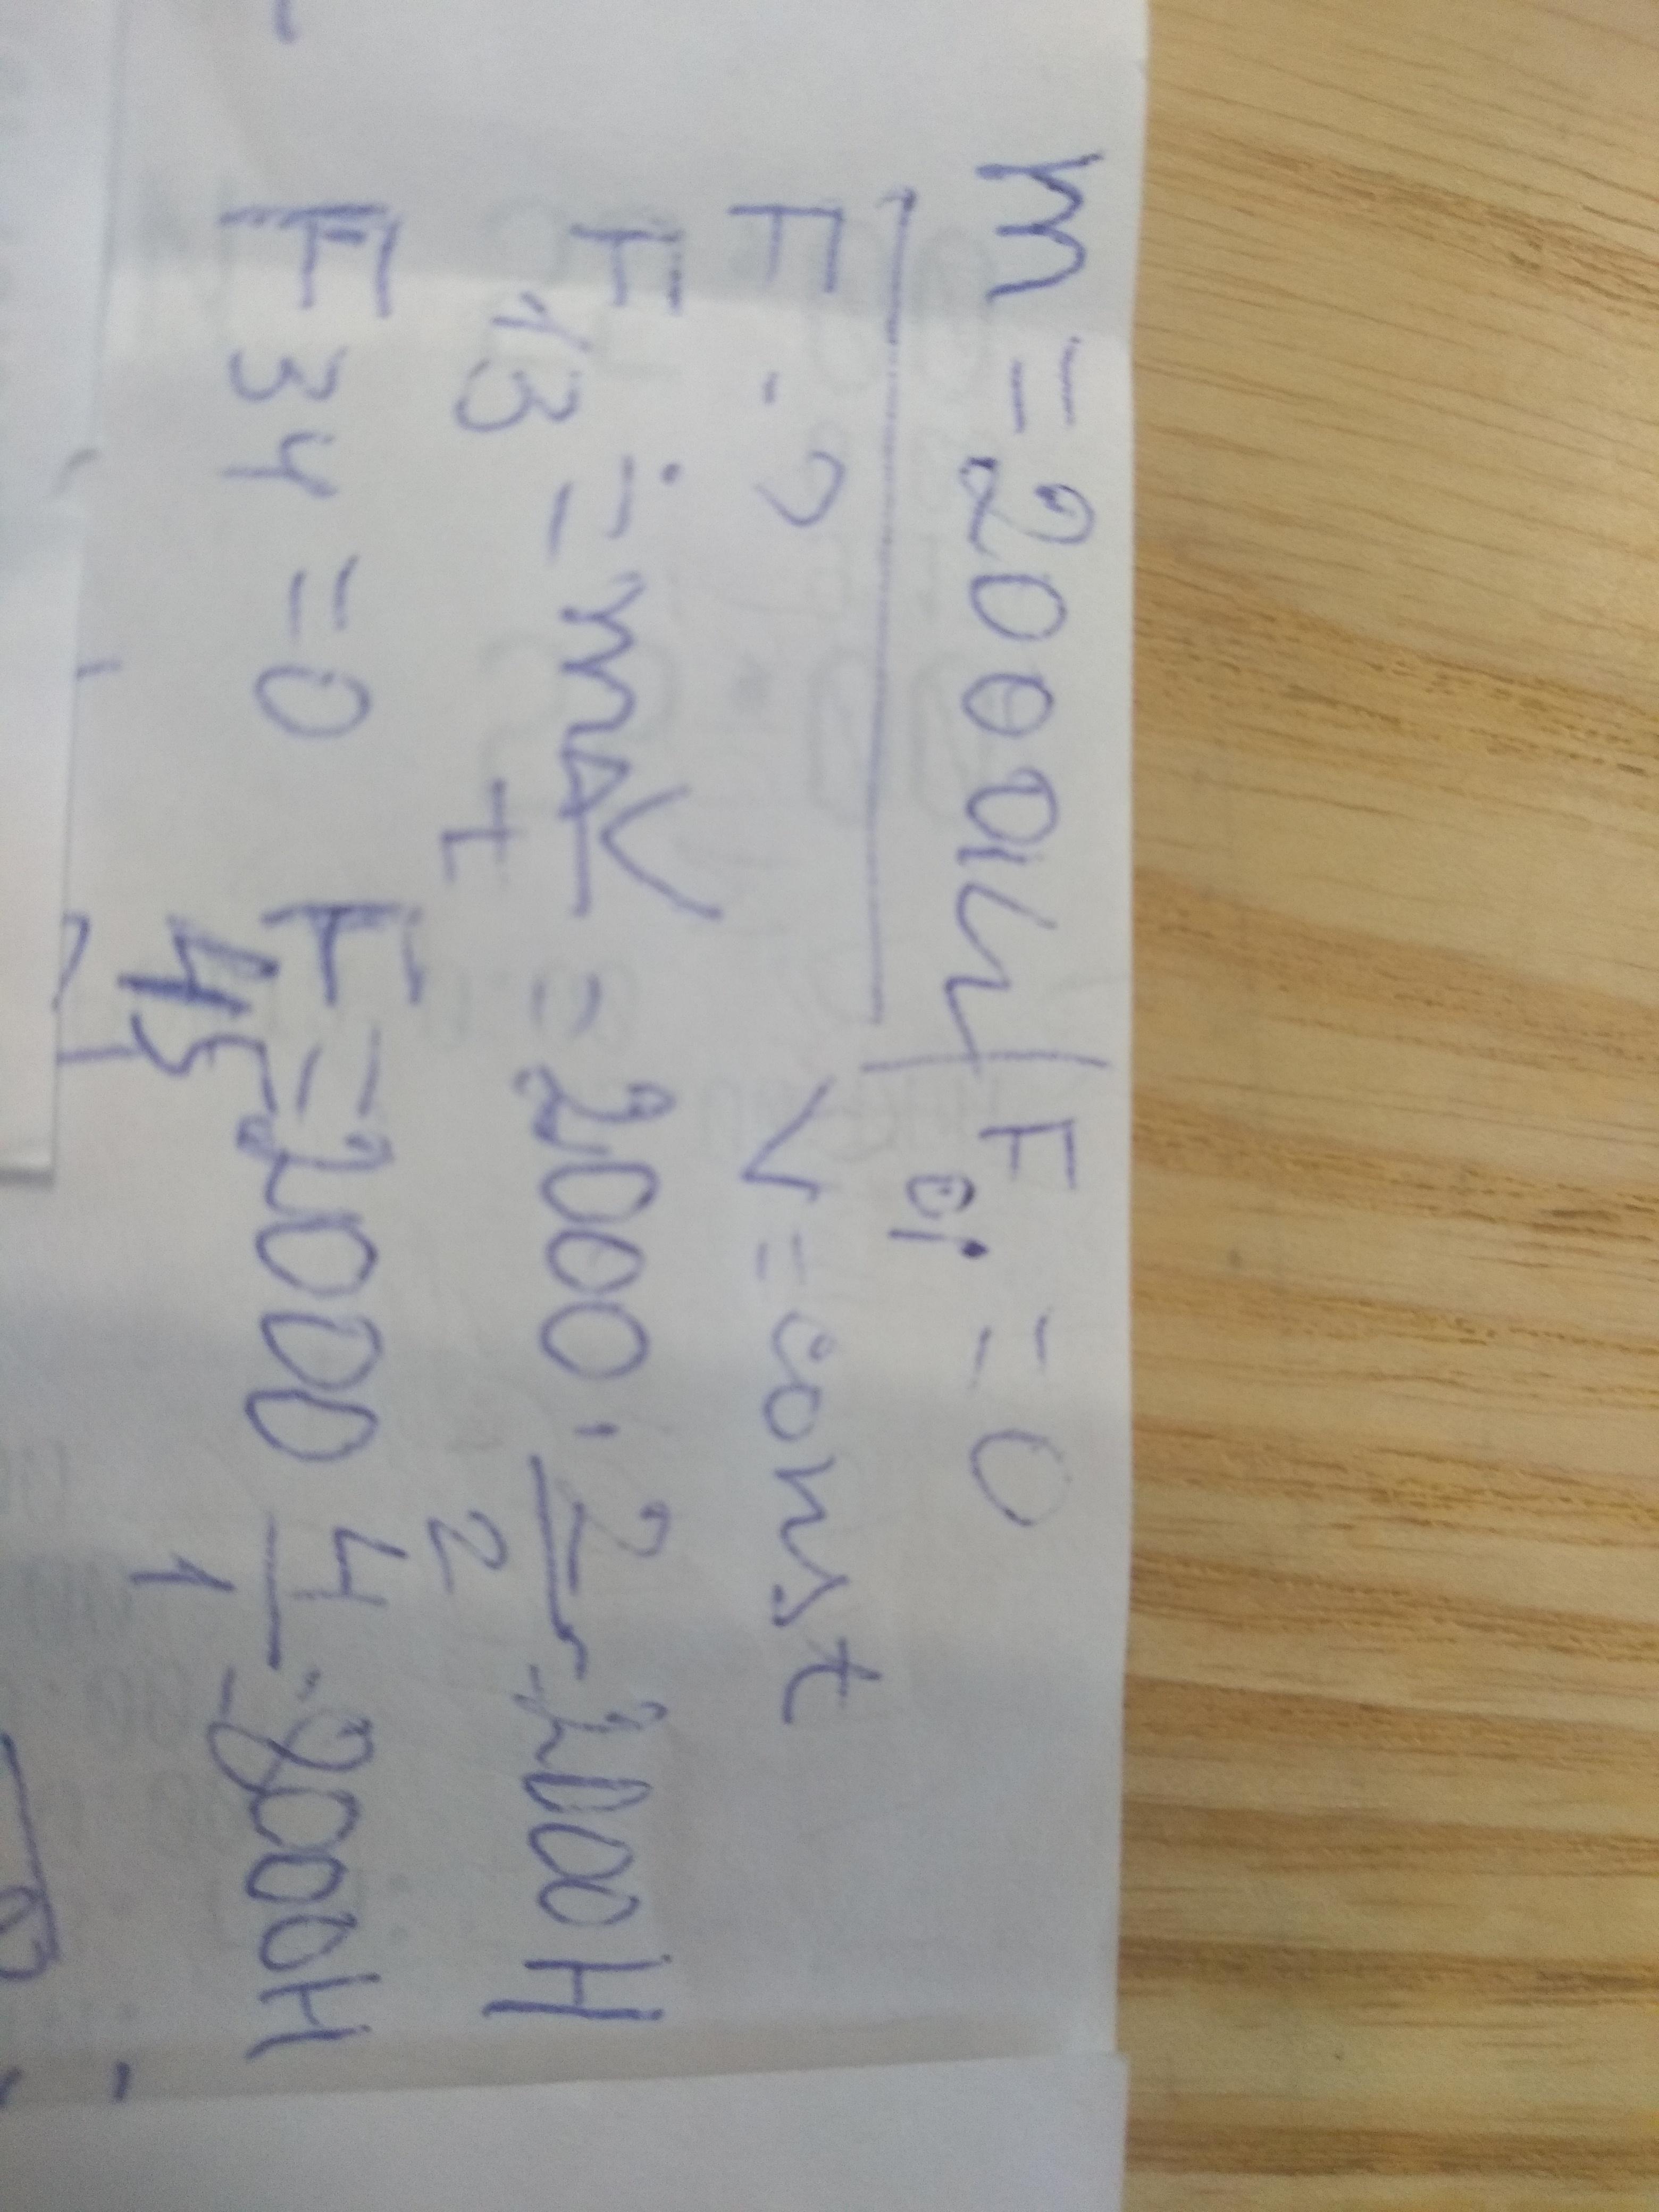 m = 2000 кг F01 = 0
F - ? V = const
F13 = mΔV/t = 2000 · 2/2 = 2000 Н
F34 = 0 F45 = 2000 4/1 = 8000 Н